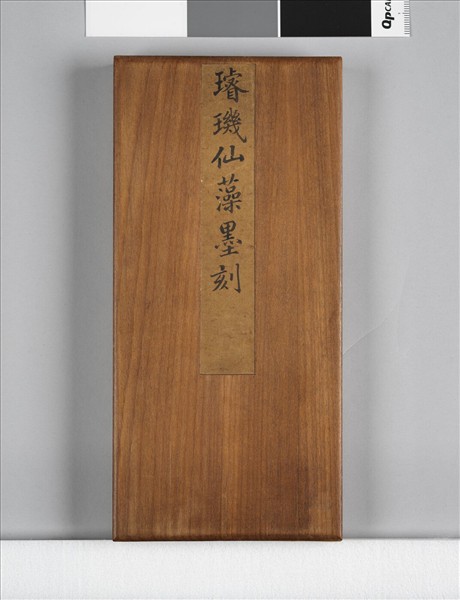 璿璣仙藻墨刻
Qp CAR